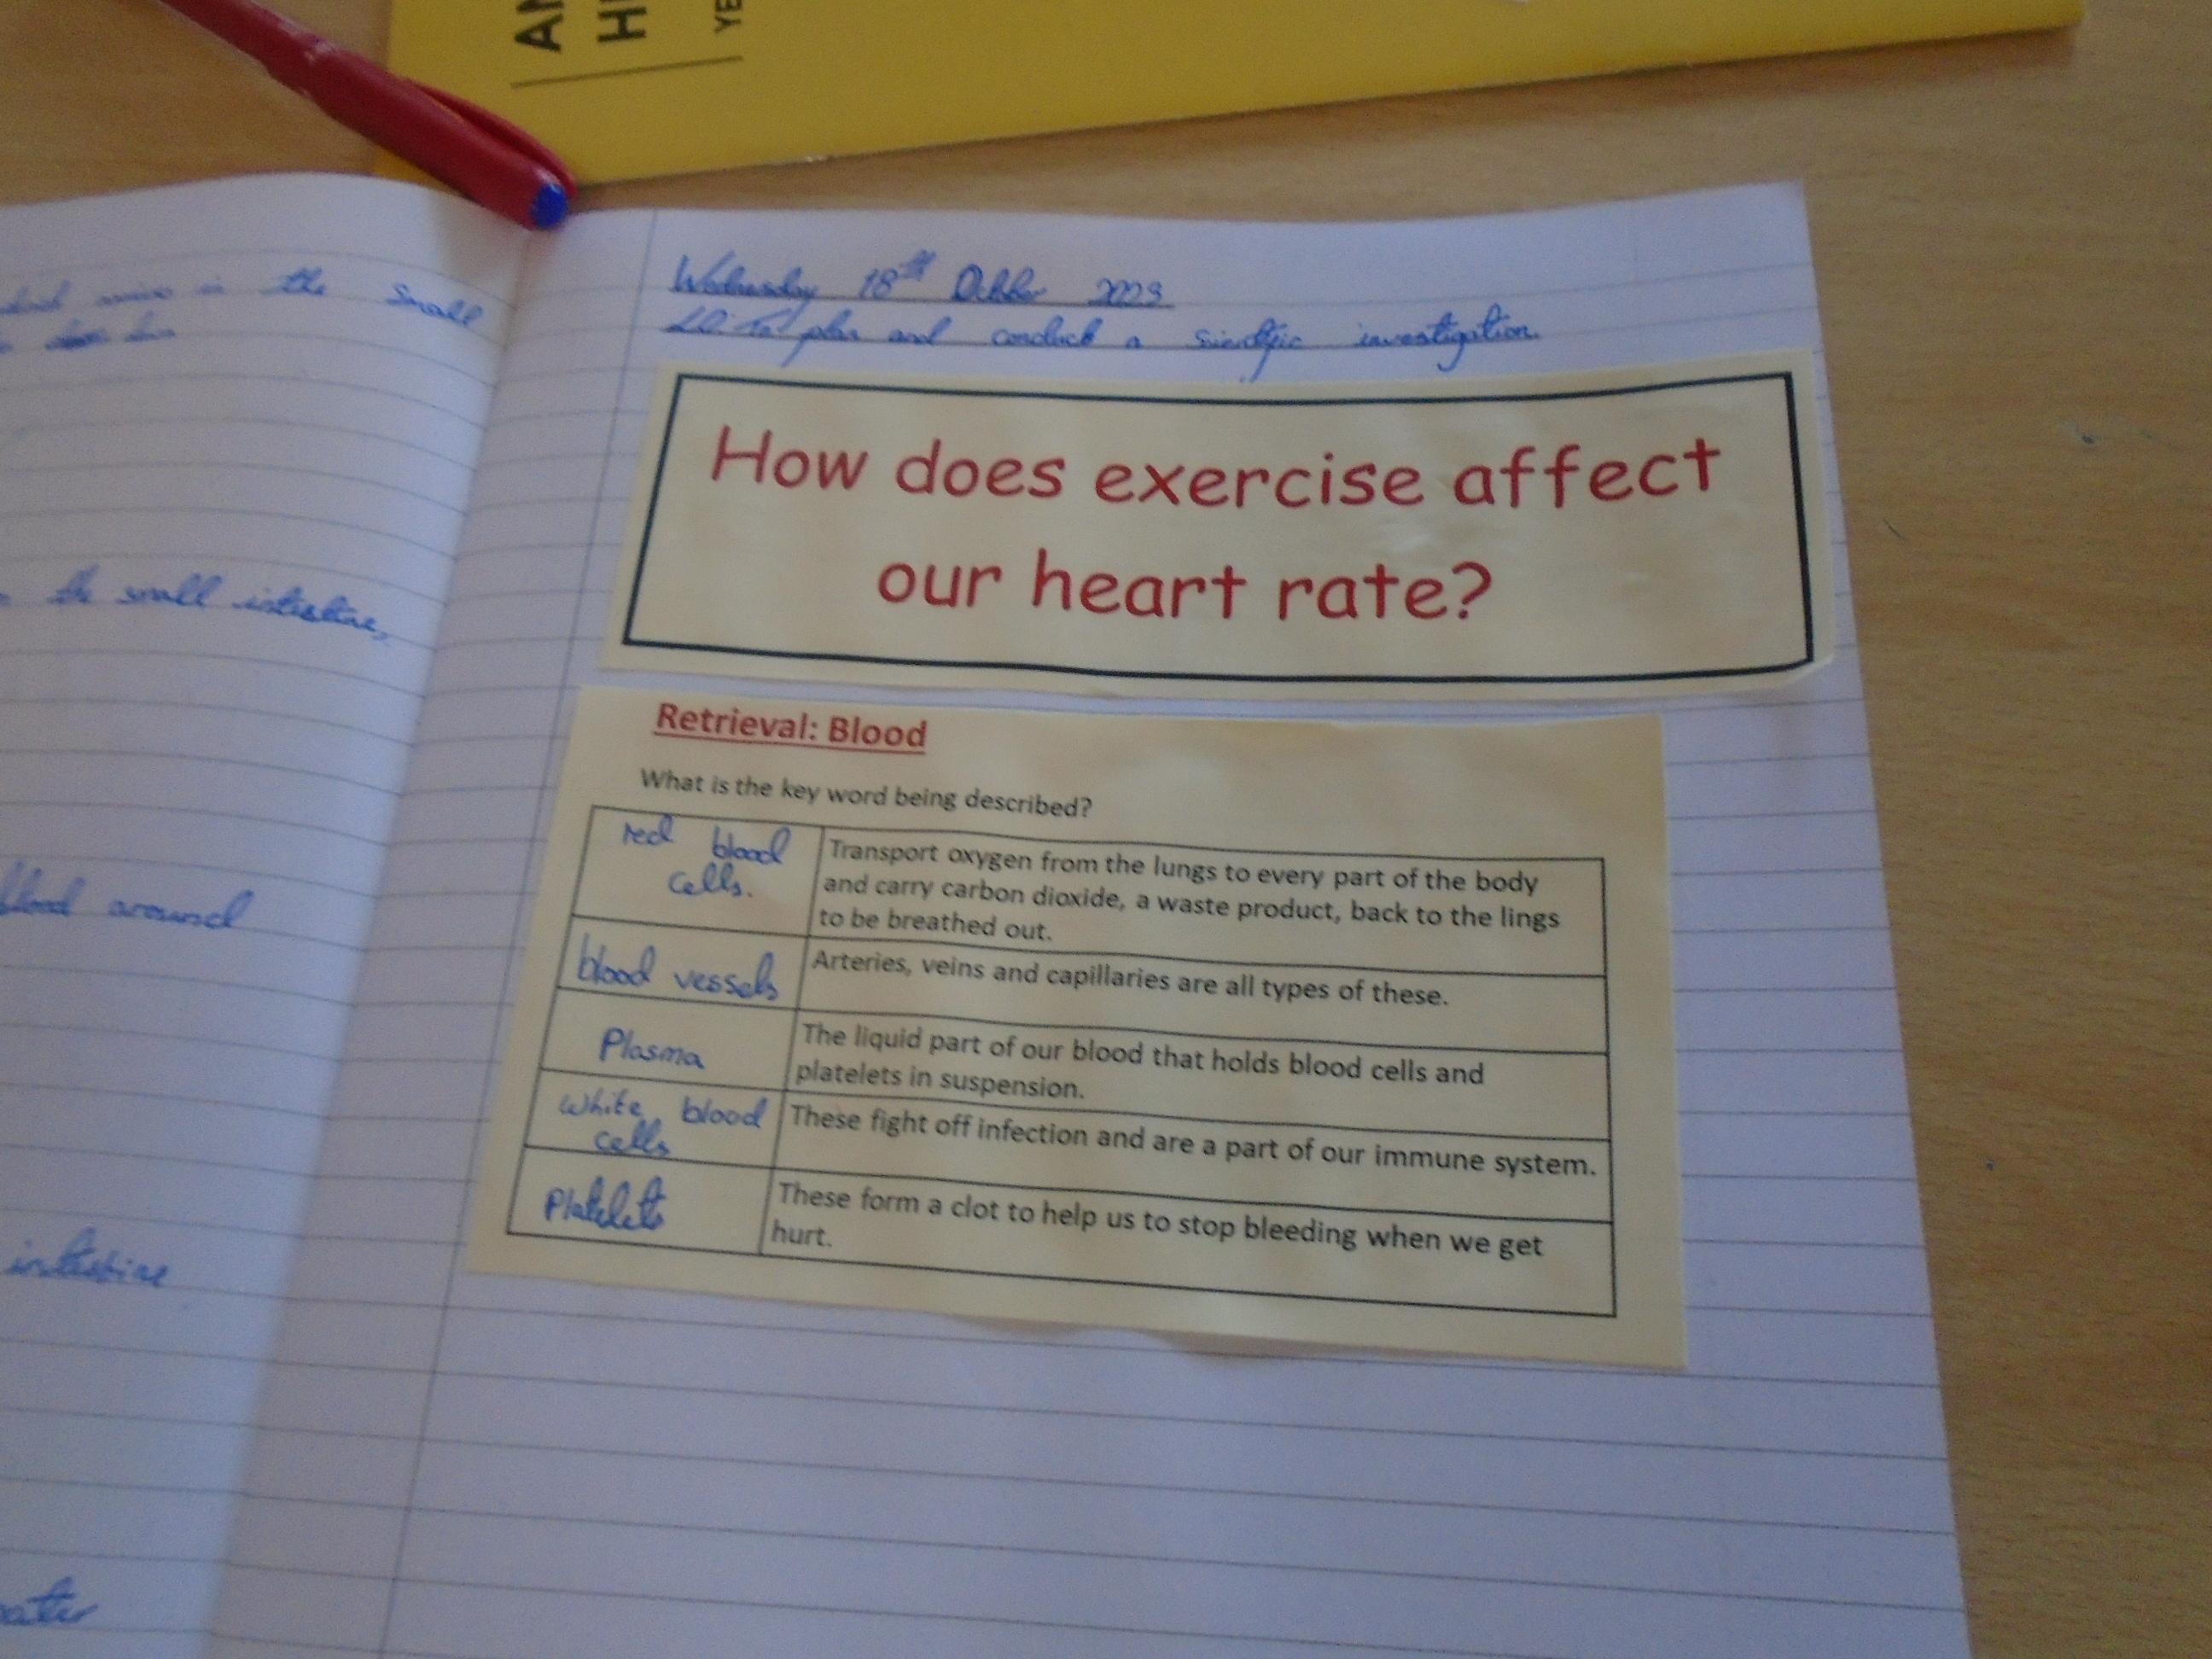 AN
HI
YE
the small
the small intestine,
blood around
intestine
Wednesday 18th October 2023
LO: To plan and conduct a sientific investigation.
How does exercise affect
our heart rate?
Retrieval: Blood
What is the key word being described?
red blood
cells.
Transport oxygen from the lungs to every part of the body
and carry carbon dioxide, a waste product, back to the lings
to be breathed out.
blood vessels
Arteries, veins and capillaries are all types of these.
Plasma
The liquid part of our blood that holds blood cells and
platelets in suspension.
white blood
cells
These fight off infection and are a part of our immune system.
Platelets
These form a clot to help us to stop bleeding when we get
hurt.